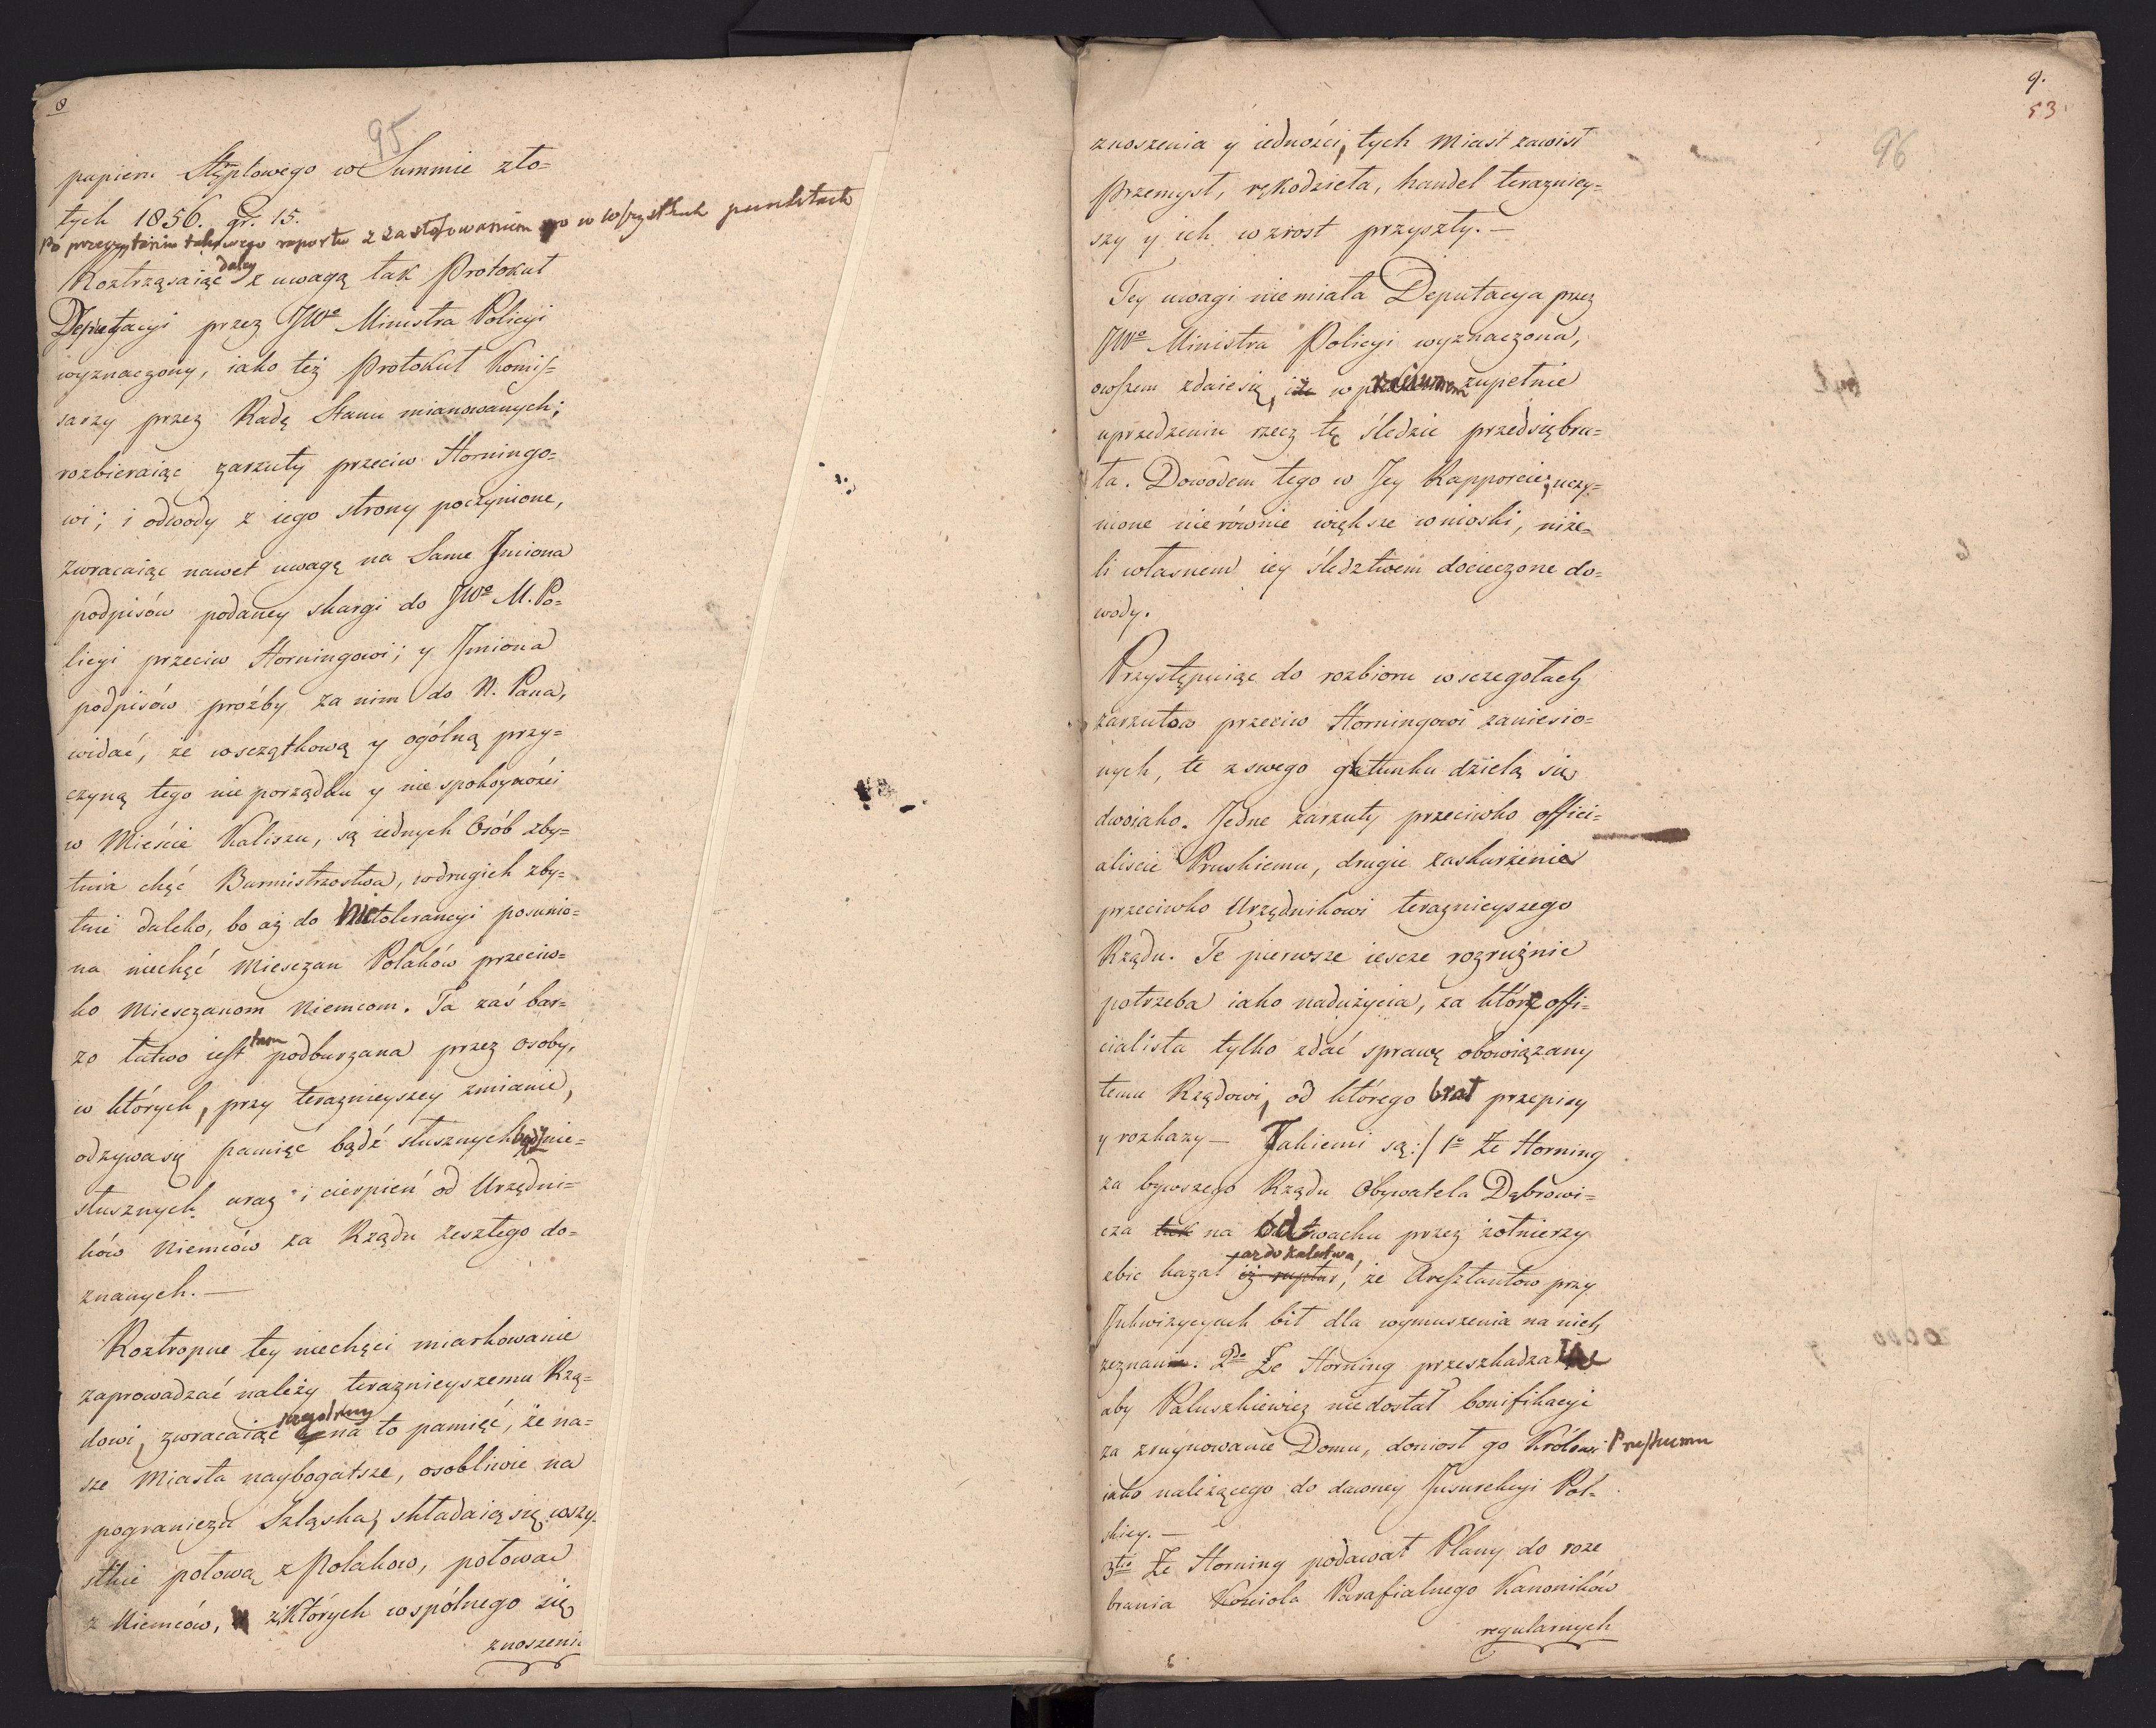 8
95
papieru Stęplowego w Summie zło=
tych 1856. gr. 15.
Po przeczytaniu takowego raportu z zastosowaniem go w wszystkich punktach
Roztrząsaiąc daley z uwagą tak Protokuł
Deputacyi przez JWo Ministra Policyi
wyznaczony, iako też Protokuł Komis=
sarzy przez Radę Stanu mianowanych;
rozbieraiąc zarzuty przeciw Horningo=
wi; i odwody z iego strony poczynione,
zwracaiąc nawet uwagę na Same Jmiona
podpisów podaney skargi do JWo M. Po=
licyi przeciw Horningowi; y Jmiona
podpisów proźby za nim do N. Pana,
widać, że wszczątkową y ogólną przy=
czyną tego nieporządku y niespokoyności
w Mieście Kaliszu, są iednych Osób zby=
tnia chęć Burmistrzostwa, w drugich zby=
tnie daleko, bo aż do nietolerancyi posunio=
na niechęć Miesczan Polaków przeciw=
ko Miesczanom Niemcom. Ta zaś bar=
zo łatwo iest tam podburzana przez osoby,
w których, przy teraznieyszey zmianie,
odzywa się pamięć bądź słusznych bądź nie=
słusznych uraz i cierpień od Urzędni=
ków Niemców za Rządu zeszłego do=
znanych. —
Roztropne tey niechęci miarkowanie
zaprowadzać należy teraznieyszemu Rzą=
dowi, zwracaiąc na to pamięć, że na=
sze Miasta naybogatsze, osobliwie na
pograniczu Szląska, składaią się wszy=
stkie połową z Polakow, połową
z Niemców, z których wspólnego się
znoszenia
9.
53.
96
znoszenia y iedności, tych Miast zawisł
przemysł, rękodzieła, handel terazniey=
szy y ich wzrost przyszły. —
Tey uwagi nie miała Deputacya przez
JWo Ministra Policyi wyznaczona,
owszem zdaie się, iż w zupełnie
uprzedzeniu rzecz tę śledzić przedsiębra=
ła. Dowodem tego w Jey Rapporcie, uczy=
nione nierównie większe wnioski, niże=
li własnem iey śledztwem docieczone do=
wody.
Przystępuiąc do rozbioru w sczegołach
zarzutow przeciw Horningowi zaniesio=
nych, te z swego gatunku dzielą się
dwoiako. Jedne zarzuty przeciwko offici=
aliscie Pruskiemu, drugie zaskarżenie
przeciwko Urzędnikowi teraznieyszego
Rządu. Te pierwsze iescze rozrużnić
potrzeba iako nadużycia, za które offi=
cialista tylko zdać sprawę obowiązany
temu Rządowi, od którego brał przepisy
y rozkazy — Jakiemi są:/ 1o Że Horning
za bywszego Rządu Obywatela Dąbrowi=
cza tak na odwachu przez żołnierzy
zbić kazał aż do kalectwa, że Aresztantow przy
Jnkwizycyach bił dla wymuszenia na nich
zeznania. 2do Że Horning przeszkadzał
aby Paluszkiewicz niedostał bonifikacyi
za zruynowanie Domu, doniosł go Królowi Pruskiemu
iako należącego do dawney Jnsurekcyi Pol=
skiey. —
3tio Że Horning podawał Plany do roze
brania Kościoła Parafialnego Kanoników
regularnych